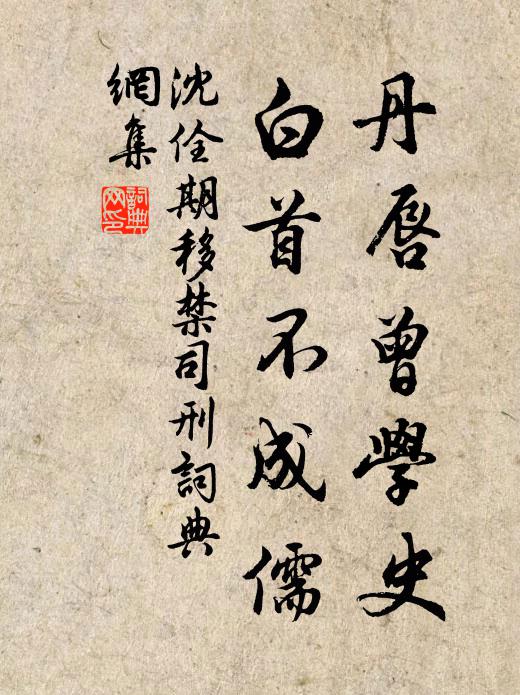 丹唇曾學史
白首不成儒
沈佺期移禁司刑詞典
網集
詞典網印